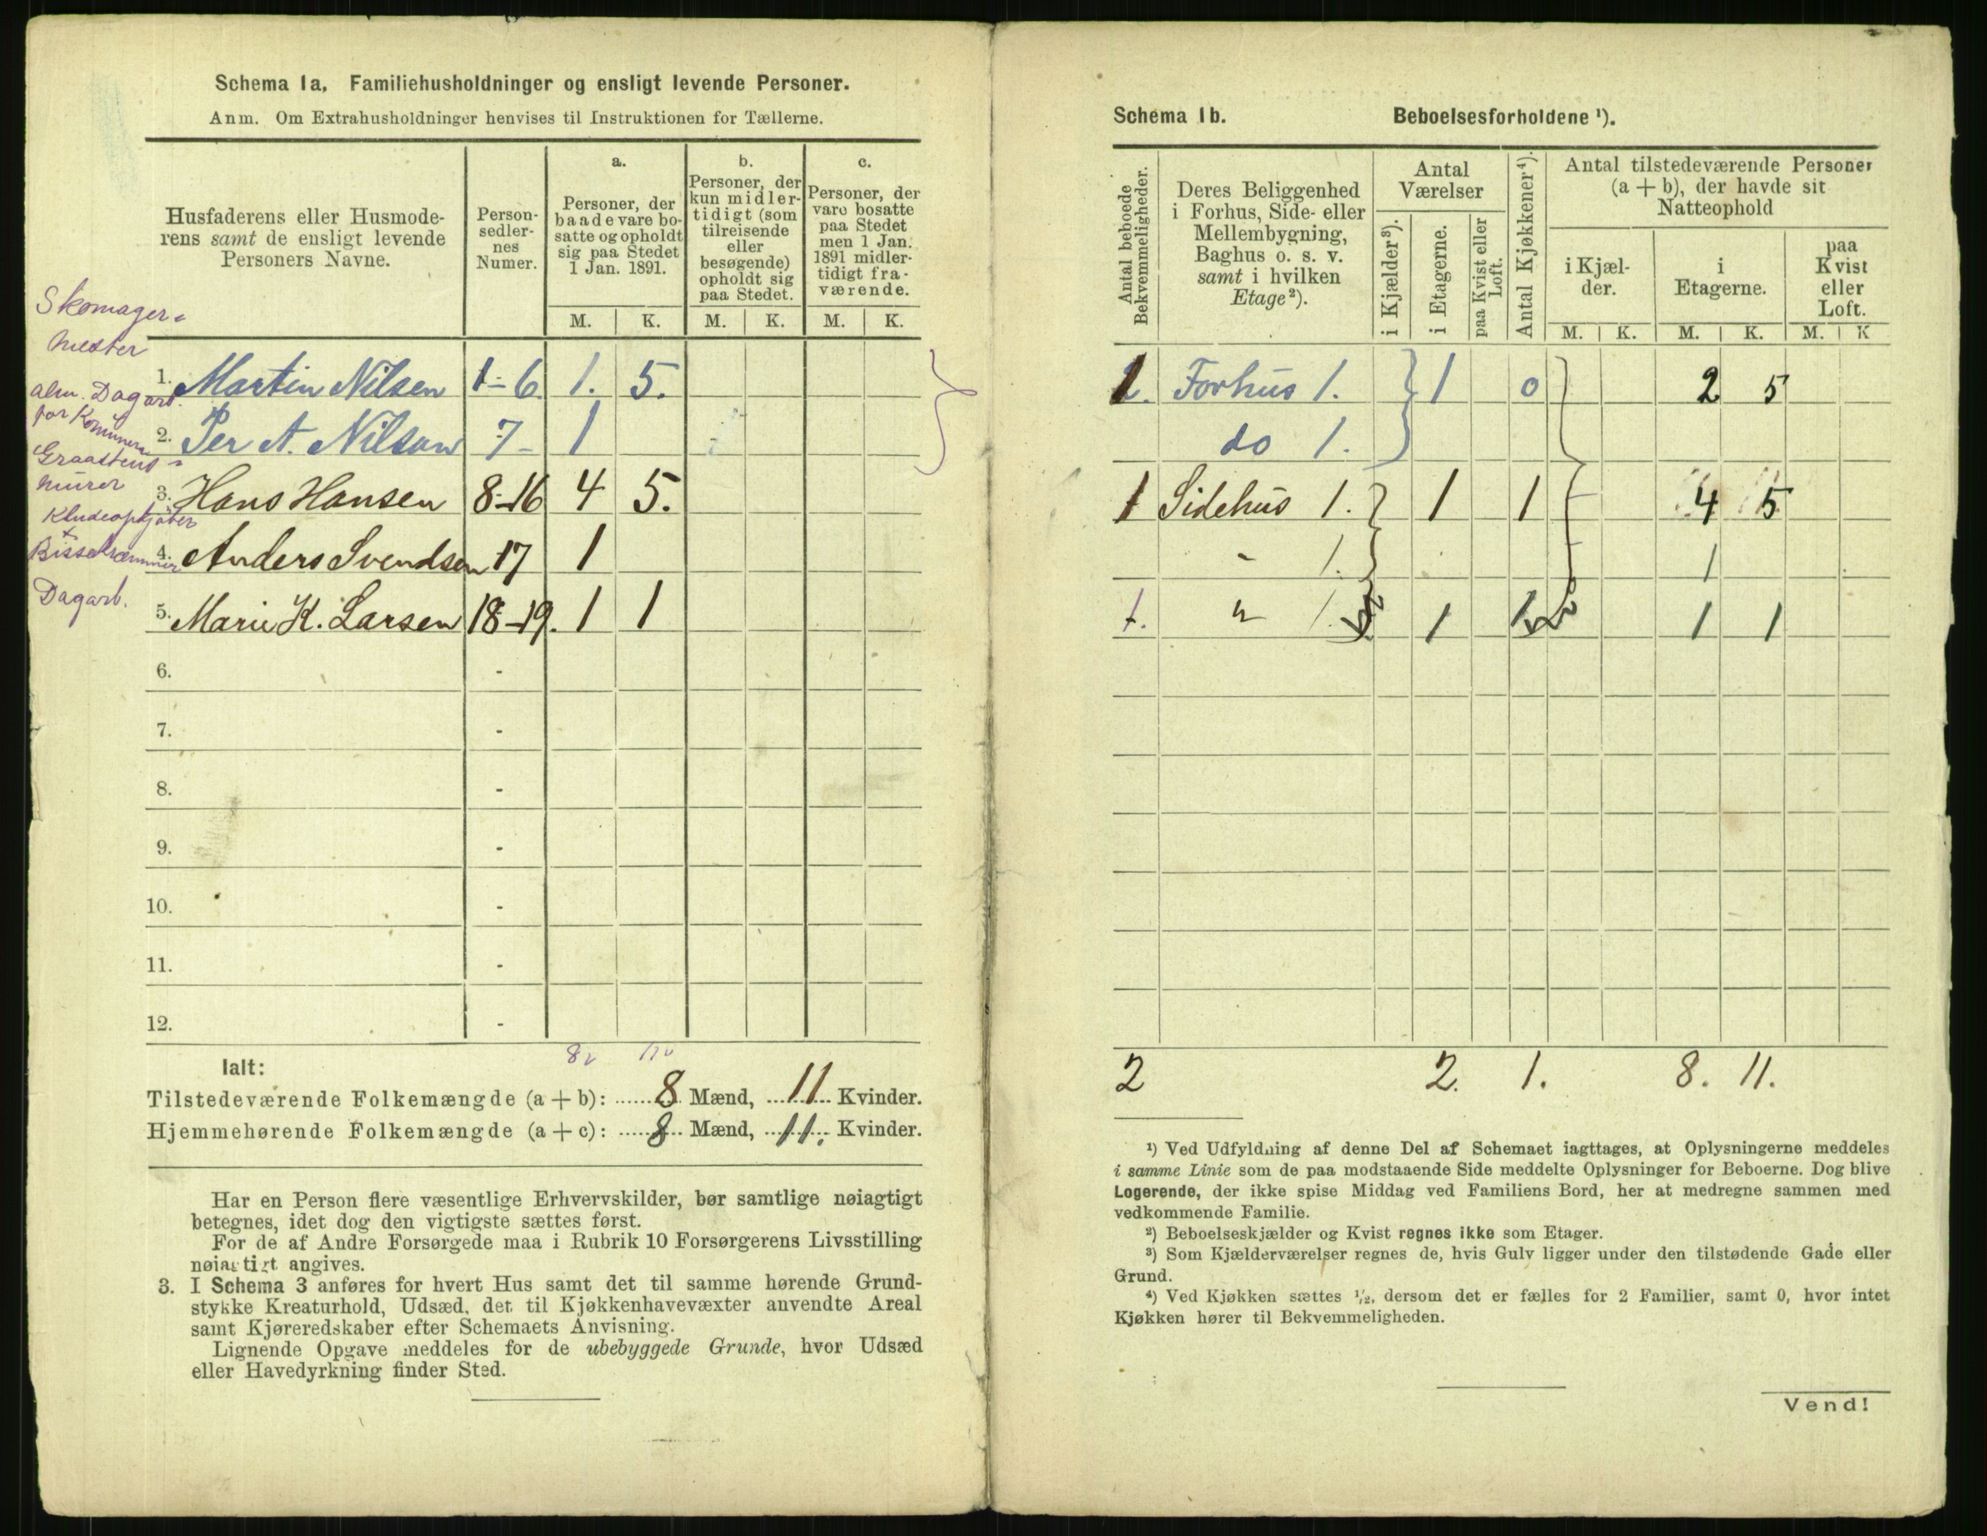 Schema 1a. Familiehusholdninger og ensligt levende Personer.
Anm. Om Extrahusholdninger henvises til Instruktionen for Tællerne.
Husfaderens eller Husmode-
rens samt de ensligt levende
Personers Navne.
Person-
sedler-
nes
Numer.
a.
Personer, der
baade vare bo-
satte og opholdt
sig paa Stedet
1 Jan. 1891.
b.
Personer, der
kun midler-
tidigt (som
tilreisende
eller
besøgende)
opholdt sig
paa Stedet.
c.
Personer, der
vare bosatte
paa Stedet
men 1 Jan.
1891 midler-
tidigt fra-
værende.
M. K. M. K. M. K.
Skomager-
mester
1. Martin Nilsen 1-6 1. 5.
alm. Dagarb.
for Komunen
2. Per A. Nilson 7- 1
Graastens-
murer
3. Hans Hansen 8-16 4 5.
Kludeopkjøber
+
4. Anders Svendsen 17 1
Dagarb.
5. Marie K. Larsen 18-19. 1 1
6. -
7. -
8. -
9. -
10. -
11. -
12. -
8 11
Ialt:
Tilstedeværende Folkemængde (a + b): 8 Mænd, 11 Kvinder.
Hjemmehørende Folkemængde (a + c): 8 Mænd, 11. Kvinder.
Har en Person flere væsentlige Erhvervskilder, bør samtlige nøiagtigt
betegnes, idet dog den vigtigste sættes først.
For de af Andre Forsørgede maa i Rubrik 10 Forsørgerens Livsstilling
nøiagtigt angives.
3. I Schema 3 anføres for hvert Hus samt det til samme hørende Grund-
stykke Kreaturhold, Udsæd, det til Kjøkkenhavevæxter anvendte Areal
samt Kjøreredskaber efter Schemaets Anvisning.
Lignende Opgave meddeles for de ubebyggede Grunde, hvor Udsæd
eller Havedyrkning finder Sted.
Schema 1b. Beboelsesforholdene ¹).
Antal beboede
Bekvemmeligheder.
Deres Beliggenhed
i Forhus, Side- eller
Mellembygning,
Baghus o. s. v.
samt i hvilken
Etage²).
Antal
Værelser
i Kjælder³).
i Etagerne.
paa Kvist eller
Loft.
Antal Kjøkkener⁴).
Antal tilstedeværende Personer
(a + b), der havde sit
Natteophold
i Kjæl-
der.
i
Etagerne.
paa
Kvist
eller
Loft.
M. K. M. K. M. K
1 Forhus 1. 1 0 2 5
do 1.
1 Sidehus 1. 1 1 4 5
" 1. 1
1. " 1. 1 1 1 1
2 2. 1. 8. 11.
¹) Ved Udfyldning af denne Del af Schemaet iagttages, at Oplysningerne meddeles
i samme Linie som de paa modstaaende Side meddelte Oplysninger for Beboerne. Dog blive
Logerende, der ikke spise Middag ved Familiens Bord, her at medregne sammen med
vedkommende Familie.
²) Beboelseskjælder og Kvist regnes ikke som Etager.
³) Som Kjælderværelser regnes de, hvis Gulv ligger under den tilstødende Gade eller
Grund.
⁴) Ved Kjøkken sættes ½, dersom det er fælles for 2 Familier, samt 0, hvor intet
Kjøkken hører til Bekvemmeligheden.
Vend!